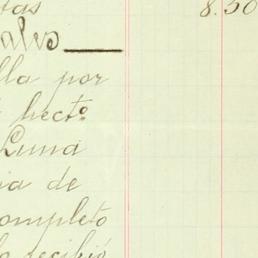 tas 8.50
alvo
lla por
hecto.
Luna
ia de
ompleto
la recibió